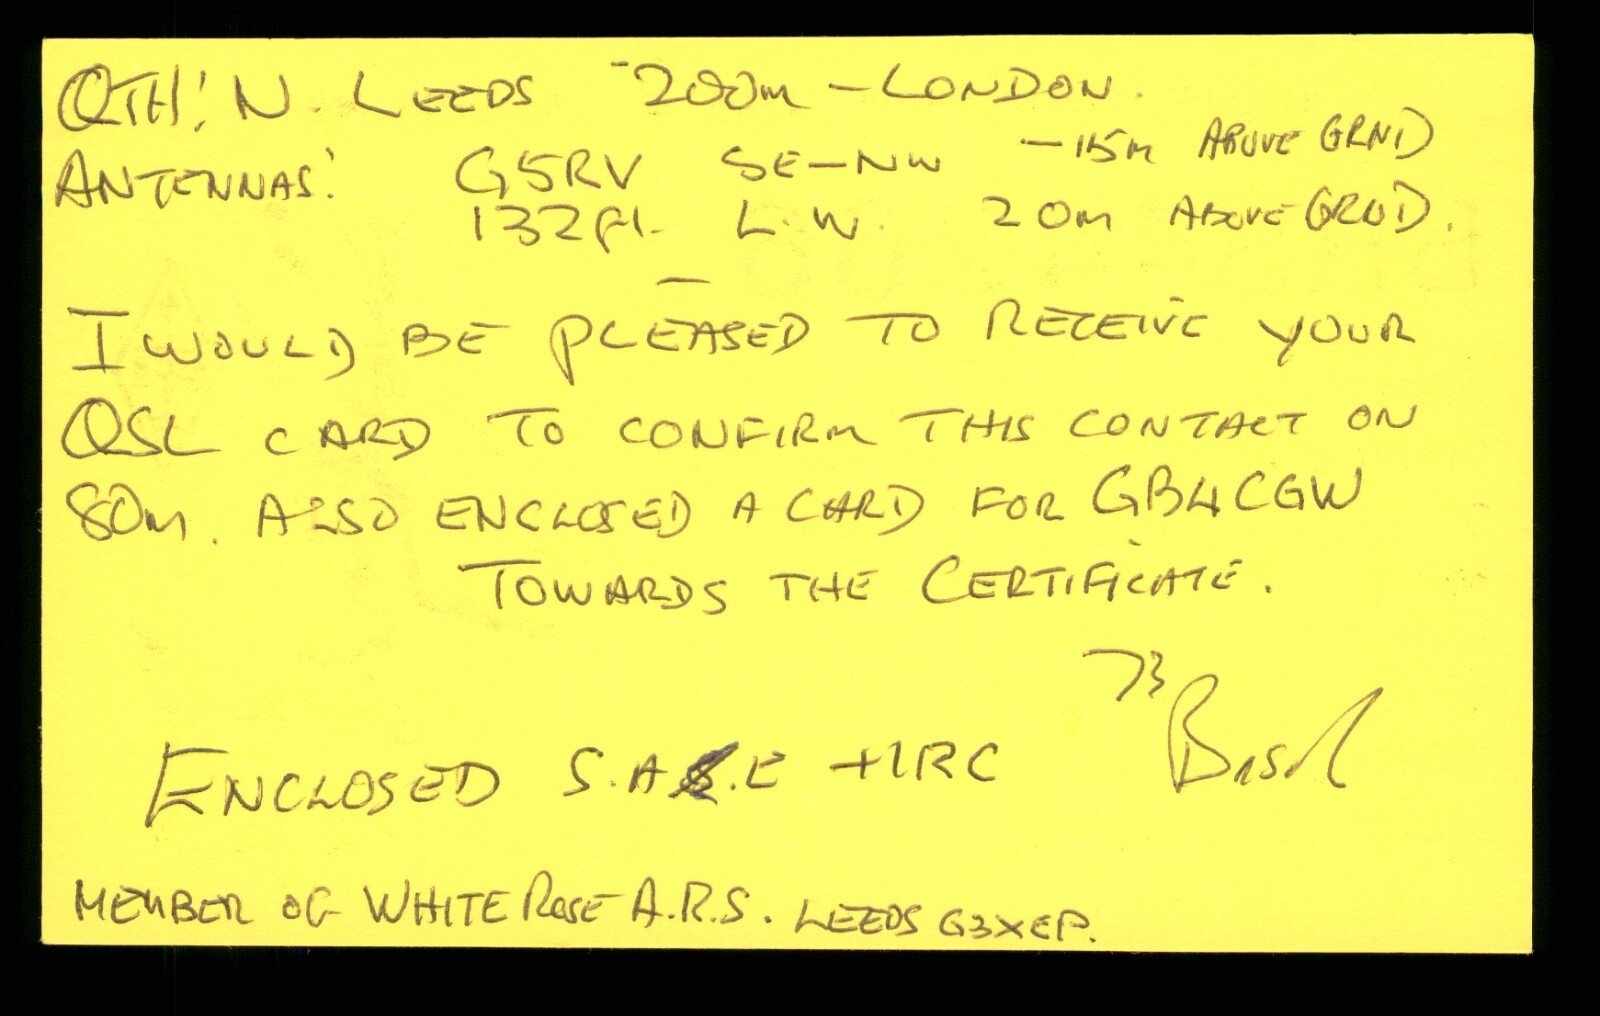 QTH: N. LEEDS -200m - LONDON.
ANTENNAS: G5RV SE-NW -15m ABOVE GRND
132ft. L.W. 20m ABOVE GRND.
I WOULD BE PLEASED TO RECEIVE YOUR
QSL CARD TO CONFIRM THIS CONTACT ON
80m. ALSO ENCLOSED A CARD FOR GB4CGW
TOWARDS THE CERTIFICATE.
73 Basil
ENCLOSED S.A.E + IRC
MEMBER OF WHITE ROSE A.R.S. LEEDS G3XEP.